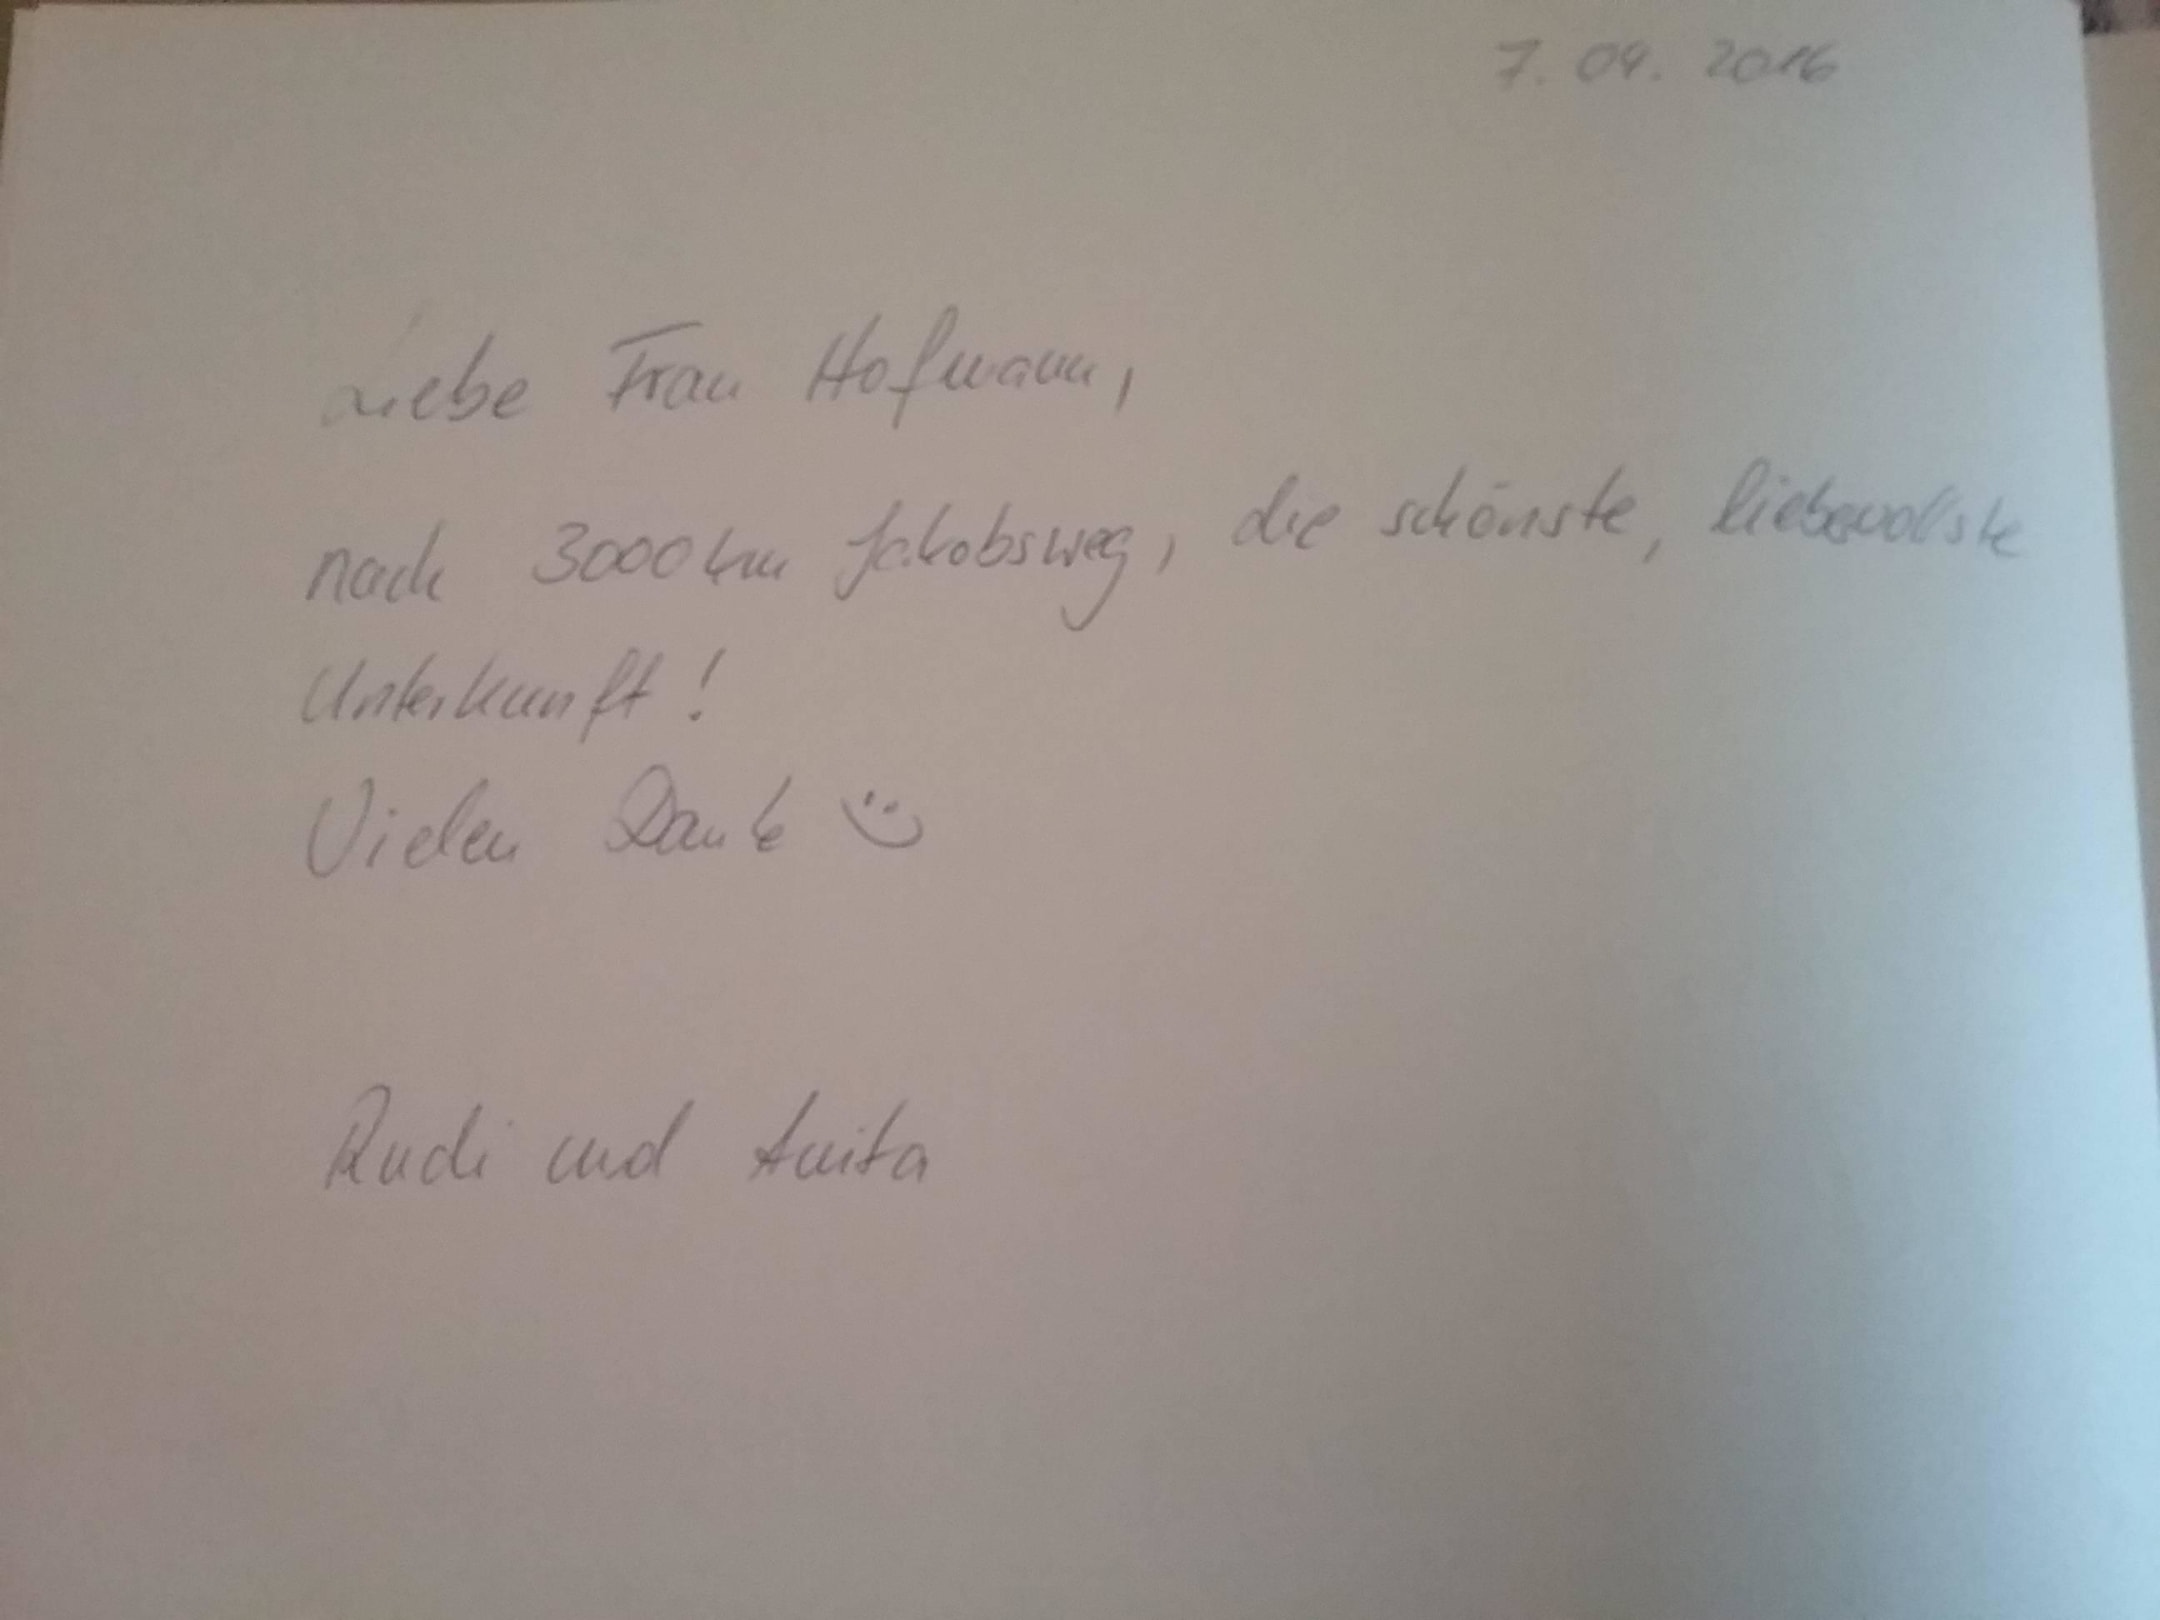 7. 04. 2016
Liebe Frau Hofmann,
nach 3000 km Jakobsweg, die schönste, liebevollste
Unterkunft!
Vielen Dank :)
Rudi und Anita